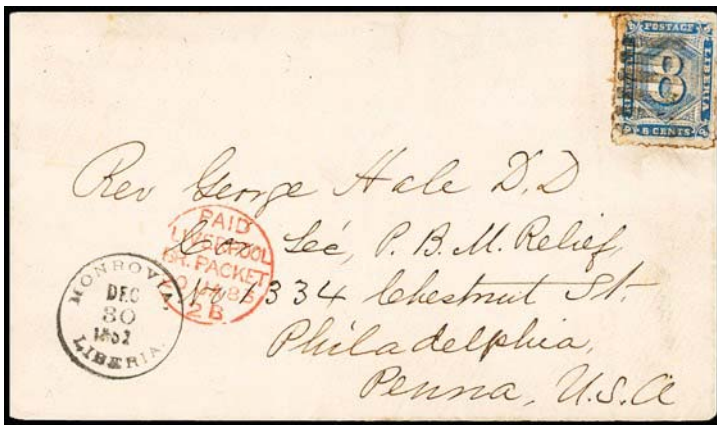 POSTAGE
LIBERIA
8
8 CENTS
Rev George Hale D.D
Cor Sec, P. B. M. Relief,
No 1334 Chestnut St.
Philadelphia,
Penna, U.S.A
PAID
LIVERPOOL
BR. PACKET
2B
MONROVIA,
DEC
30
LIBERIA.